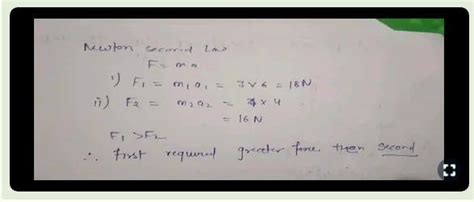 Newton second Law
F = ma
i) F1 = m1a1 = 3 x 6 = 18N
ii) F2 = m2a2 = 4 x 4
= 16N
F1 >F2
∴ first required greater force than second